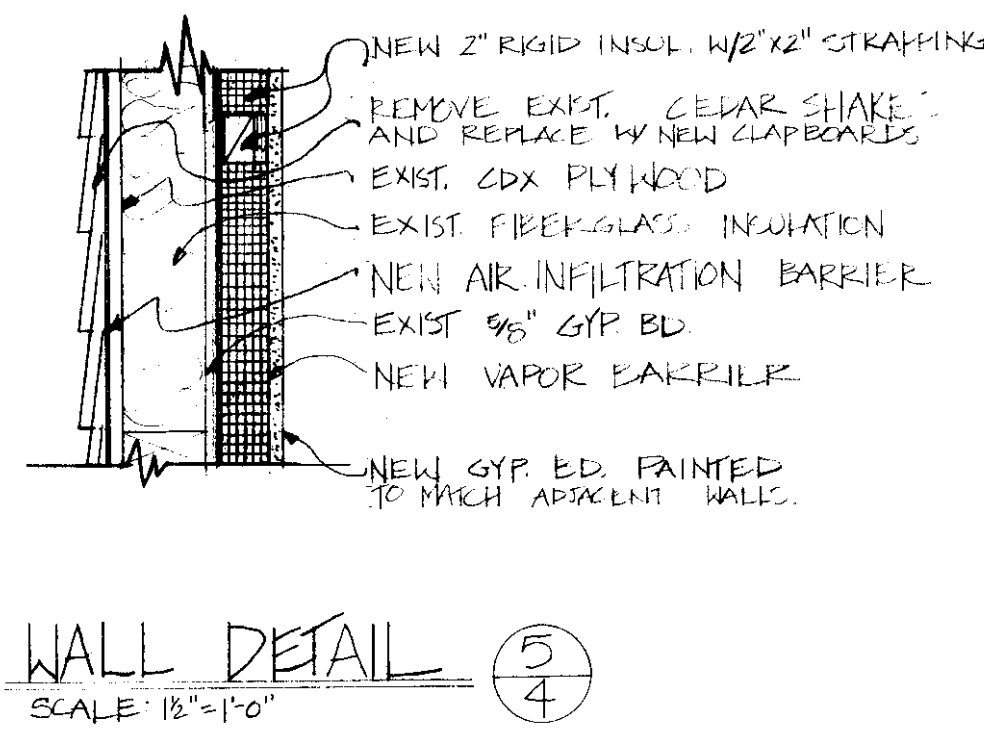 NEW 2" RIGID INSUL. W/2"X2" STRAPPING
REMOVE EXIST. CEDAR SHAKES
AND REPLACE W/ NEW CLAPBOARDS
EXIST. CDX PLYWOOD
EXIST. FIBERGLASS INSULATION
NEW AIR INFILTRATION BARRIER
EXIST 5/8" GYP. BD.
NEW VAPOR BARRIER
NEW GYP. BD. PAINTED
TO MATCH ADJACENT WALLS.
WALL DETAIL
SCALE: 1½"=1'-0"
5
4